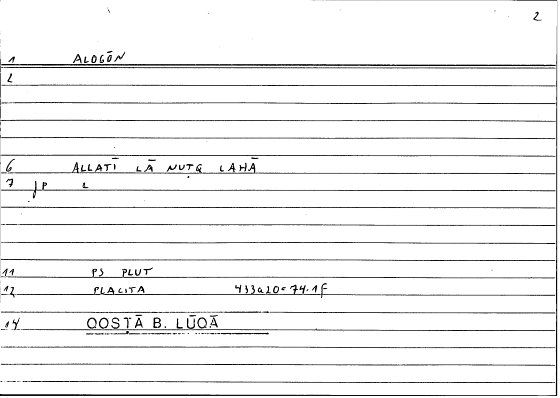 2
1 ALOGŌN
2
6 ALLATĪ LĀ NUṬQ LAHĀ
7 P L
11 PS PLUT
12 PLACITA 433a20=74.1f
14 QOSṬĀ B. LŪQĀ